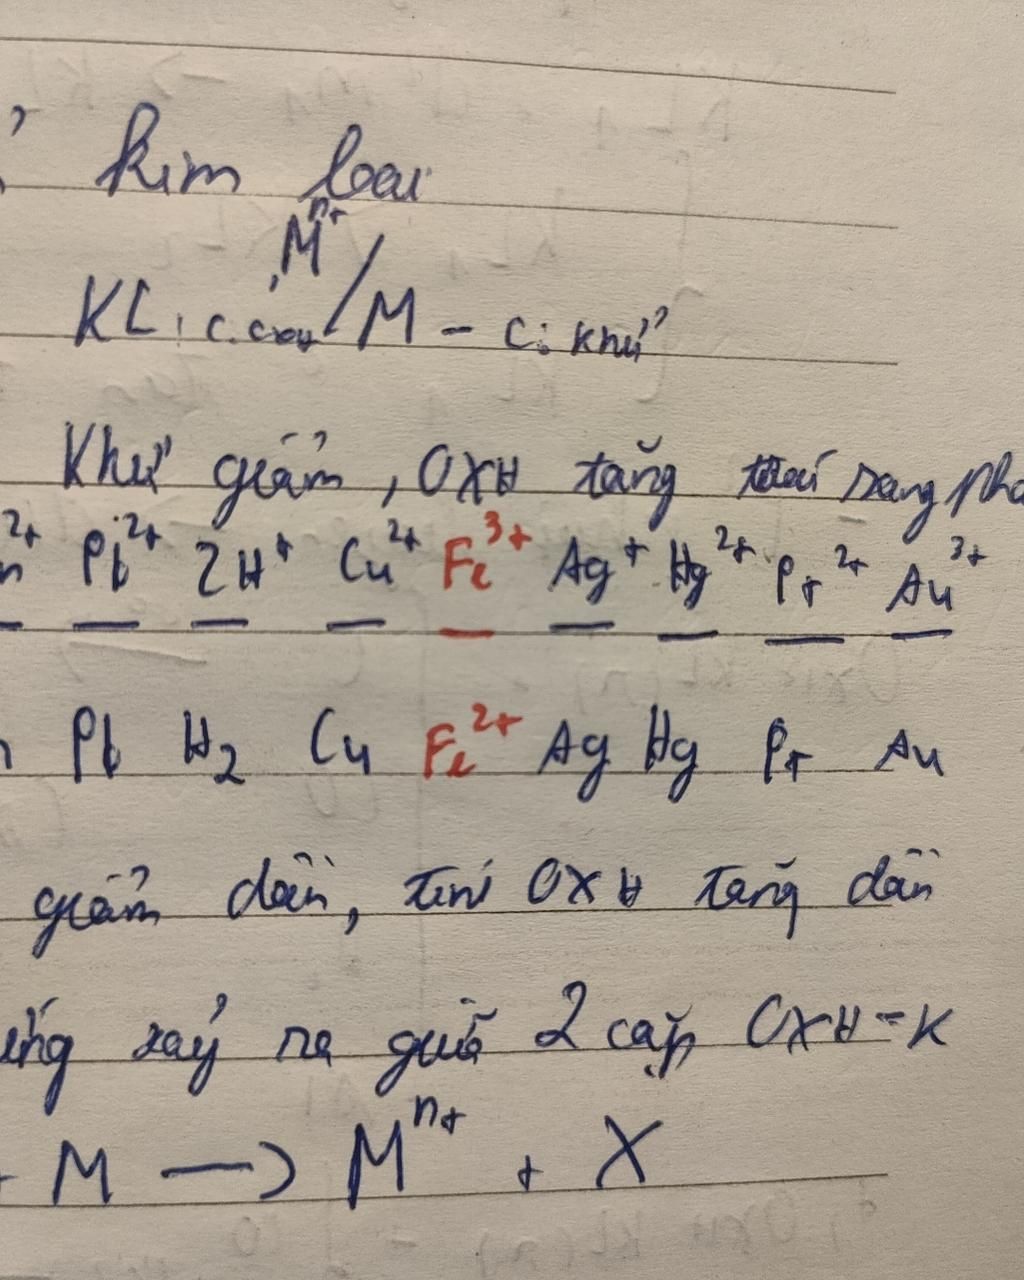 kim loại
Mⁿ⁺
KL: c.oxy/M - c: khử
Khử giảm, OXH tăng sang
²⁺ Pb²⁺ 2H⁺ Cu²⁺ Fe³⁺ Ag⁺ Hg²⁺ Pt²⁺ Au³⁺
Pb H₂ Cu Fe²⁺ Ag Hg Pt Au
giảm dần, tính OXH tăng dần
ứng xảy ra giữa 2 cặp OXH-K
M → Mⁿ⁺ + X